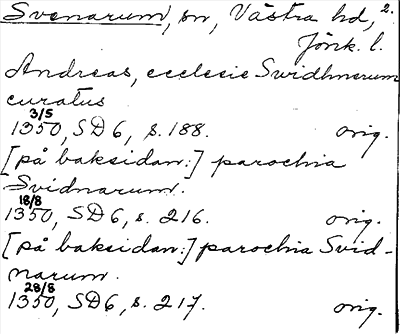 Svenarum, sn, Västra hd, 2.
Jönk. l.
Andreas, ecclesie Svidhnarum
curatus
3/5
1350, SD 6, s. 188. orig.
[på baksidan:] parochia
Svidnarum.
18/8
1350, SD 6, s. 216. orig.
[på baksidan:] parochia Svid-
narum.
28/8
1350, SD 6, s. 217. orig.